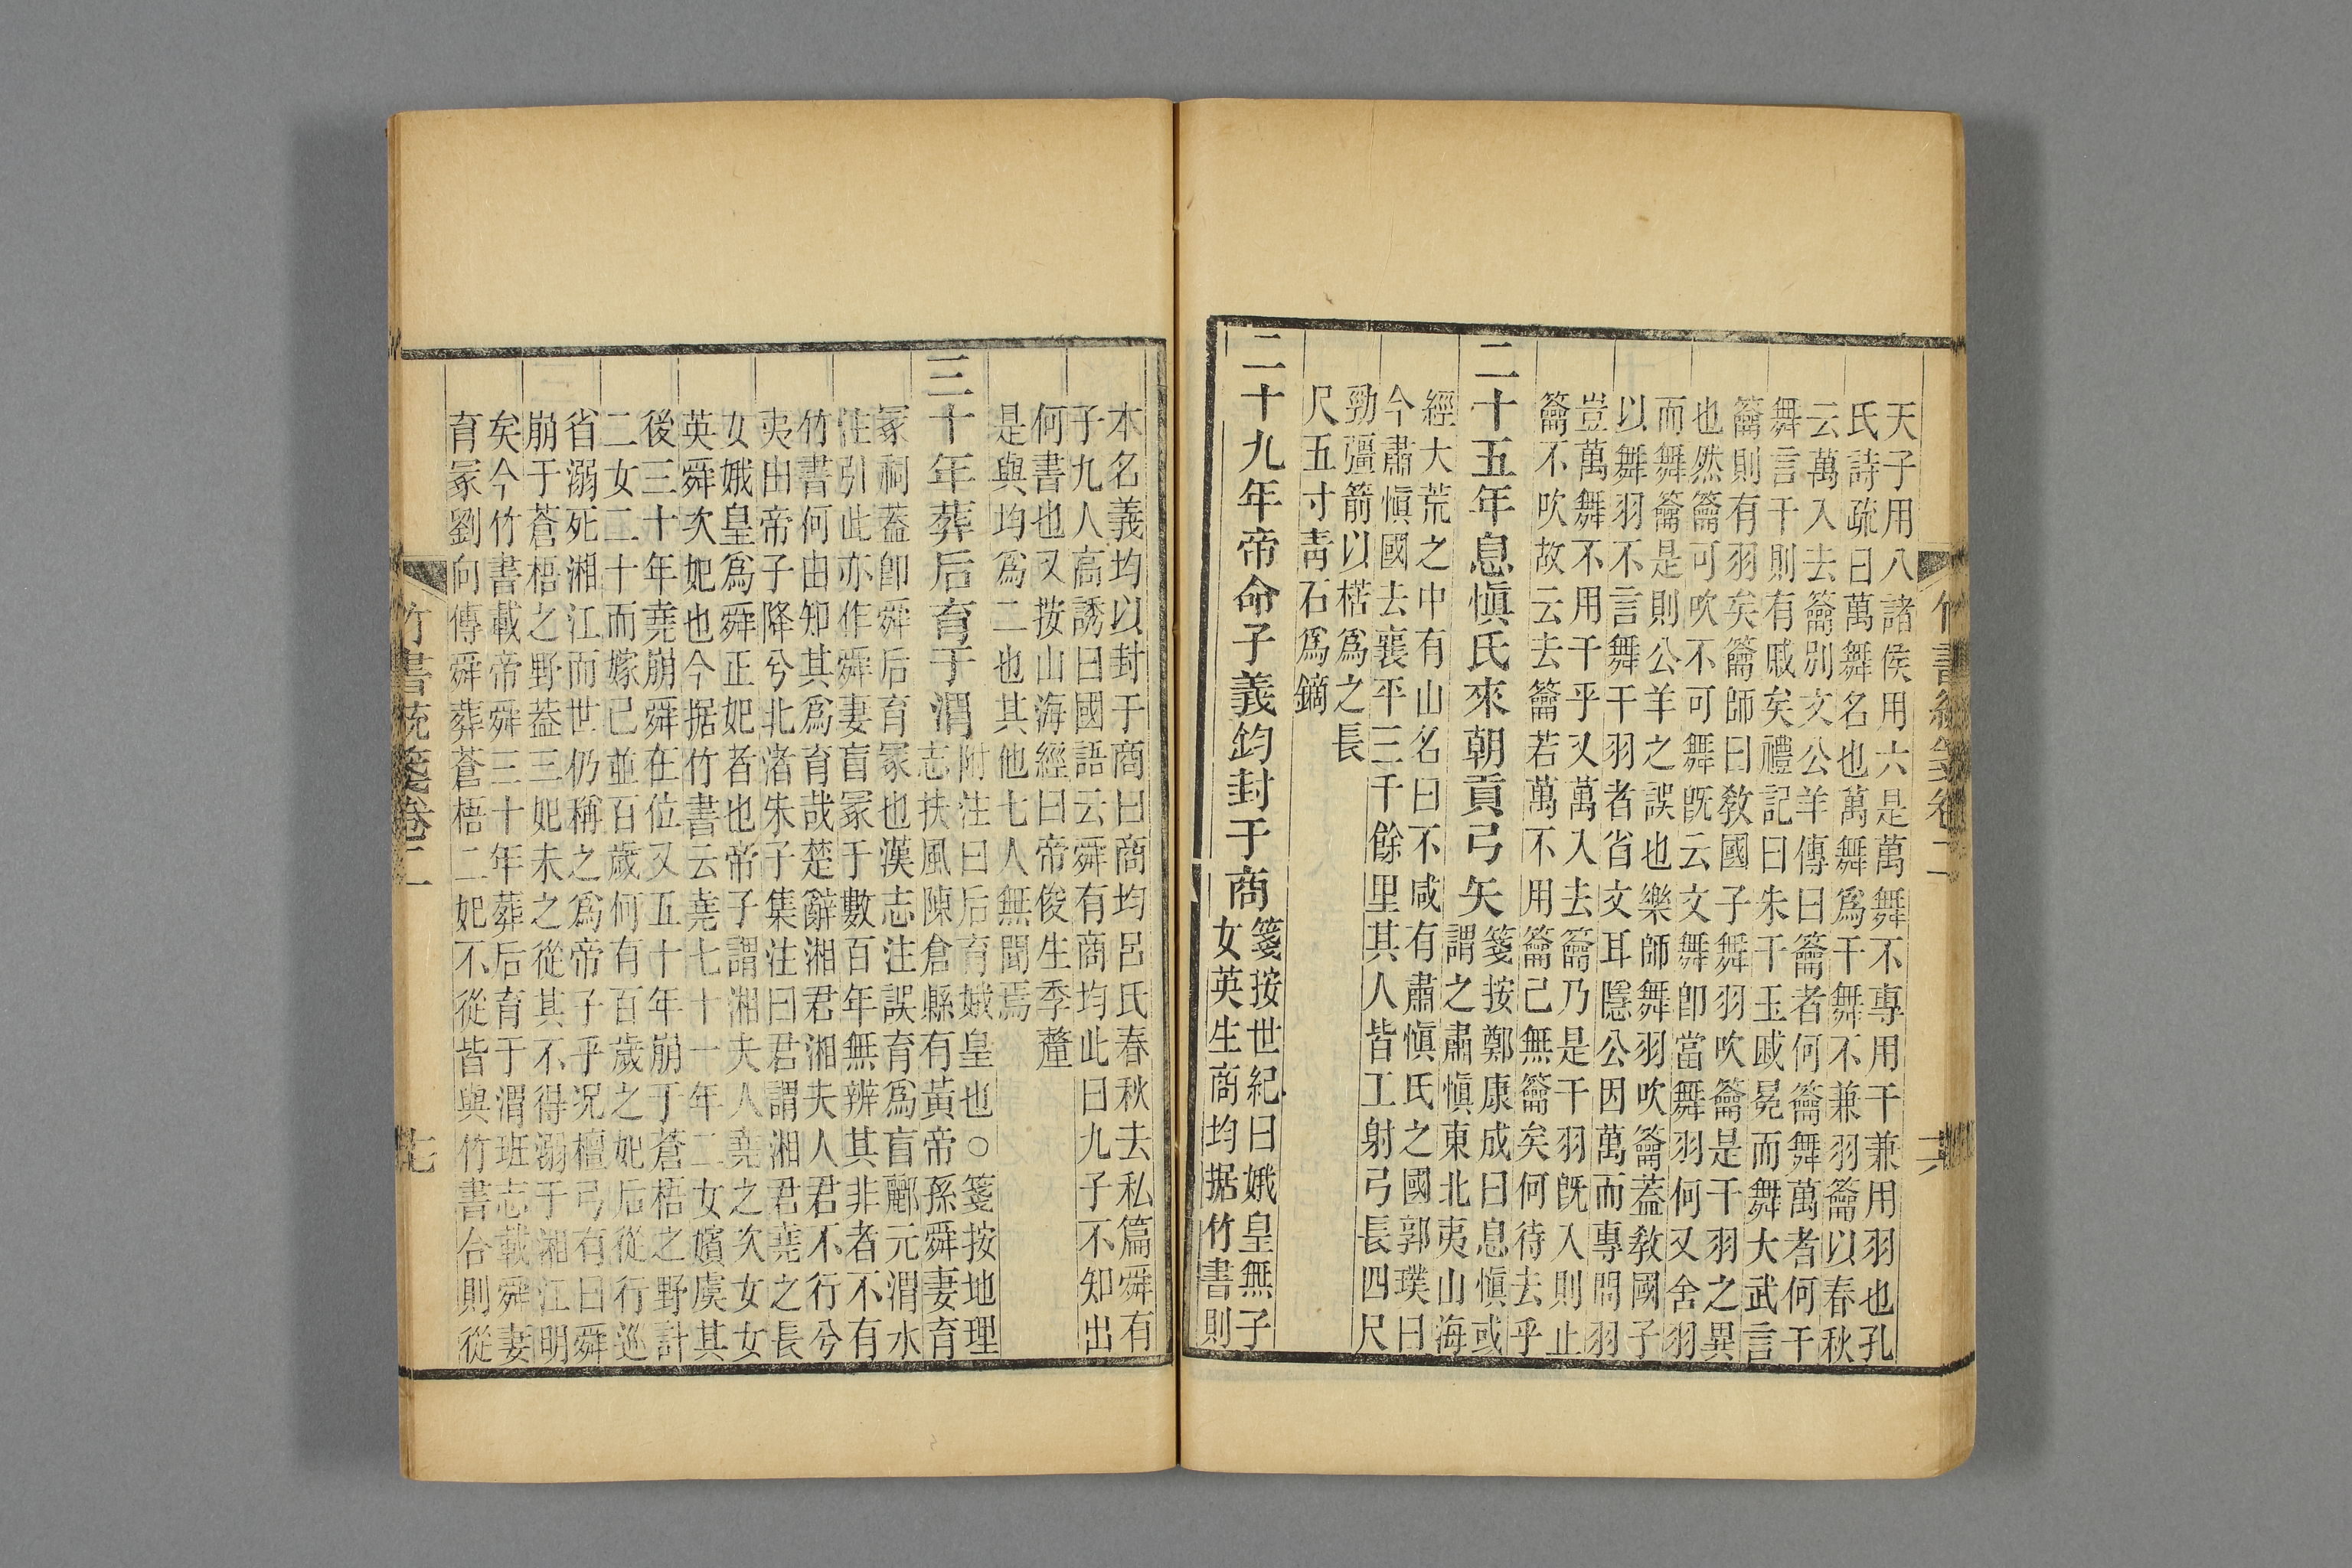 天子用八諸侯用六是萬舞不專用干兼用羽也孔
氏詩疏曰萬舞名也萬舞爲干舞不兼羽籥以春秋
云萬入去籥別文公羊傳曰籥者何籥舞萬者何干
舞言干則有戚矣禮記曰朱干玉戚冕而舞大武言
籥則有羽矣籥師曰敎國子舞羽吹籥是干羽之異
也然籥可吹不可舞旣云文舞卽當舞羽何又舍羽
而舞籥是則公羊之誤也樂師舞羽吹籥蓋敎國子
以舞羽不言舞干羽者省文耳隱公因萬而專問羽
豈萬舞不用干乎又萬入去籥乃是干羽旣入則止
籥不吹故云去籥若萬不用籥己無籥矣何待去乎
二十五年息愼氏來朝貢弓矢箋按鄭康成曰息愼或
謂之肅愼東北夷山海
經大荒之中有山名曰不咸有肅愼氏之國郭璞曰
今肅愼國去襄平三千餘里其人皆工射弓長四尺
勁彊箭以楛爲之長
尺五寸靑石爲鏑
二十九年帝命子義鈞封于商箋按世紀曰娥皇無子
女英生商均据竹書則
竹書統箋卷二
六
本名義均以封于商曰商均呂氏春秋去私篇舜有
子九人高誘曰國語云舜有商均此曰九子不知出
何書也又按山海經曰帝俊生季釐
是與均爲二也其他七人無聞焉
三十年葬后育于渭附注曰后育娥皇也○箋按地理
志扶風陳倉縣有黃帝孫舜妻育
冢祠蓋卽舜后育冢也漢志注誤育爲盲酈元渭水
注引此亦作舜妻盲冢于數百年無辨其非者不有
竹書何由知其爲育哉楚辭湘君湘夫人君不行兮
夷由帝子降兮北渚朱子集注曰君謂湘君堯之長
女娥皇爲舜正妃者也帝子謂湘夫人堯之次女女
英舜次妃也今据竹書云堯七十一年二女嬪虞其
後三十年堯崩舜在位又五十年崩于蒼梧之野計
二女二十而嫁已並百歲何有百歲之妃后從行巡
省溺死湘江而世仍稱之爲帝子乎況檀弓有曰舜
崩于蒼梧之野蓋三妃未之從其不得溺于湘江明
矣今竹書載帝舜三十年葬后育于渭班志載舜妻
育冢劉向傳舜葬蒼梧二妃不從皆與竹書合則從
竹書統箋卷二
七